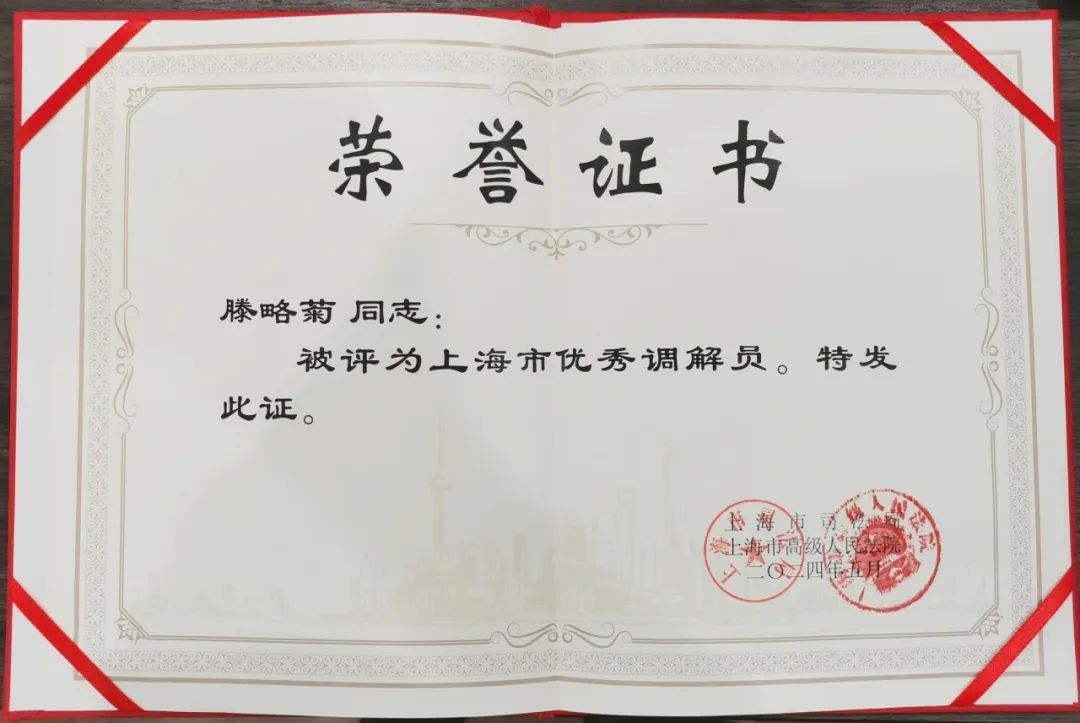 荣誉证书
滕略菊 同志：
被评为上海市优秀调解员。特发
此证。
上海市司法局
上海市高级人民法院
二〇二四年五月